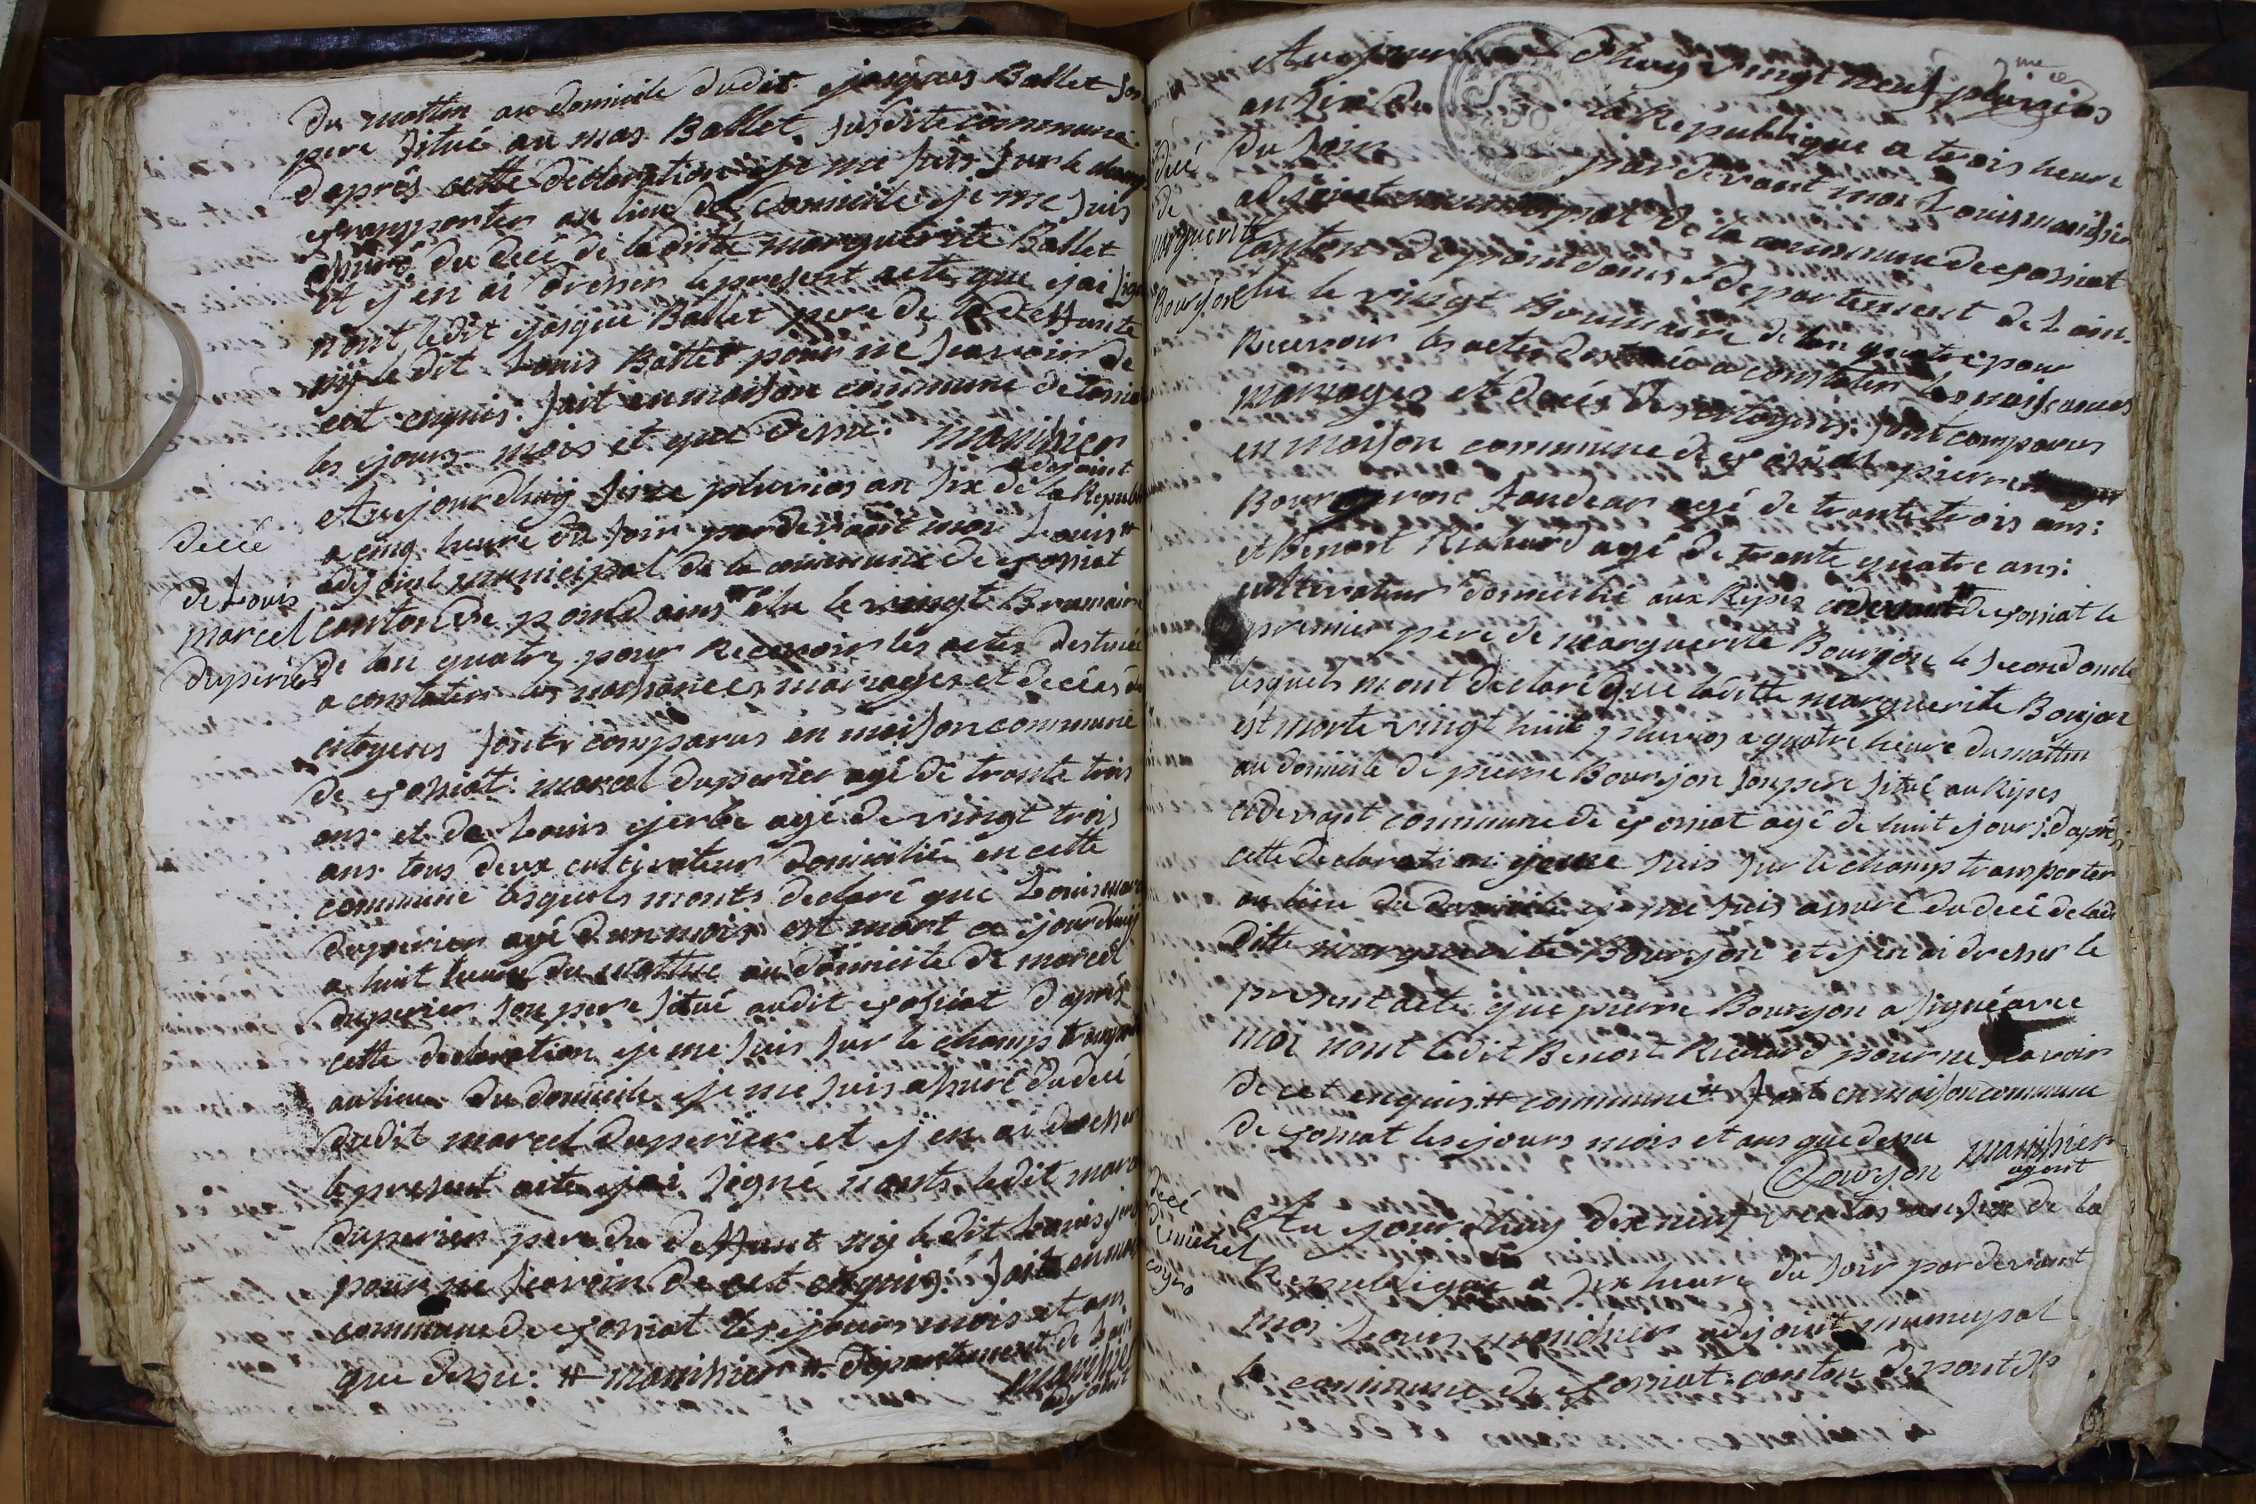 du mattin au domicile dudit jasques Ballet son
pere situé au mas Ballet susdite commune
d'aprés cette declaration je me suis sur le champs
transporter au lieu de domicile je me suis
assuré du decé de laditte marguerite Ballet
et j'en ai dresser le present acte que j'ai signé
nont ledit jasque Ballet pere de la deffunte
nij le dit Louis Ballet pour ne scavoir de
cet enquis: fait en maison commune de
les jours mois et que dessu: manihier
adjoint
Aujourdhuy seize pluvios an six de la Republi
a cinq heure du soir pardevant moi Louis #
adjoint municipal de la commune de josniat
decée
de Louis
marcel
duperier
canton de pondains # élu le vingt Brumaire
de lan quatre pour Recevoir les actes destinée
a constater les naissances mariages et decées de
citoyens sont comparus en maison commune
de josniat: marcel duperier agé de trante trois
ans et de Louis jerbe agé de vingt trois
ans tous deux cultivateur domicilié en cette
commune lesquels monts declaré que Louis marc
duperier agé d'un mois est mort ce jourdhuy
a huit heure du mattin au domicile de marcel
duperier son pere situé audit josniat d'aprés
cette declaration je me suis sur le champs transpor
au lieu du domicile je me suis assuré du decé
dudit marcel duperier et j'en ai dresser
le present acte j'ai signé nonts ledit marc
duperier pere du deffunt nij le dit Louis jer
pour ne scavoir de cet enquis: fait en mai
commune de josniat les jours mois et ans
que dessu: # manihier # departement de Lain
manihier
adjoint
Aujourdhuy vingt neuf pluvios
an six de la Republique a trois heure
du soir pardevant moi Louis manihier
decé
de
marguerite
Bourjon
adjoint municipal de la commune de josniat
canton de pontdains departement de Lain
élu le vingt Brumaire de lan quatre pour
Recevoir les actes destinée a constater les naissances
mariages et decés des citoyens: sont comparus
en maison commune de josniat pierre
Bourjon agé de trante trois ans:
et Benoit Richard agé de trante quatre ans:
cultivateur domicilié aux Ripes cidevant # de josniat le
premier pere de marguerite Bourjon le second oncle
lesquels mont declaré que laditte marguerite Bourjon
est morte vingt huit pluvios a quatre heure du mattin
au domicile de pierre Bourjon son pere situé au Ripes
cidevant commune de josniat agé de huit jours: d'aprés
cette declaration je me suis sur le champs transporter
au lieu du domicile je me suis assuré du decé de la
ditte marguerite Bourjon et j'en ai dresser le
present acte que pierre Bourjon a signé avec
moi nont ledit Benoit Richard pour ne scavoir
de cet enquis # commune # fait en maison commune
de josniat les jours mois et ans que dessu
Bourjon manihier
agent
decé
de
michel
Aujourdhuy dix neuf ventos an six de la
Republique a six heure du soir pardevant
moi Louis manihier adjoint municipal
la commune de josniat: canton de pontd